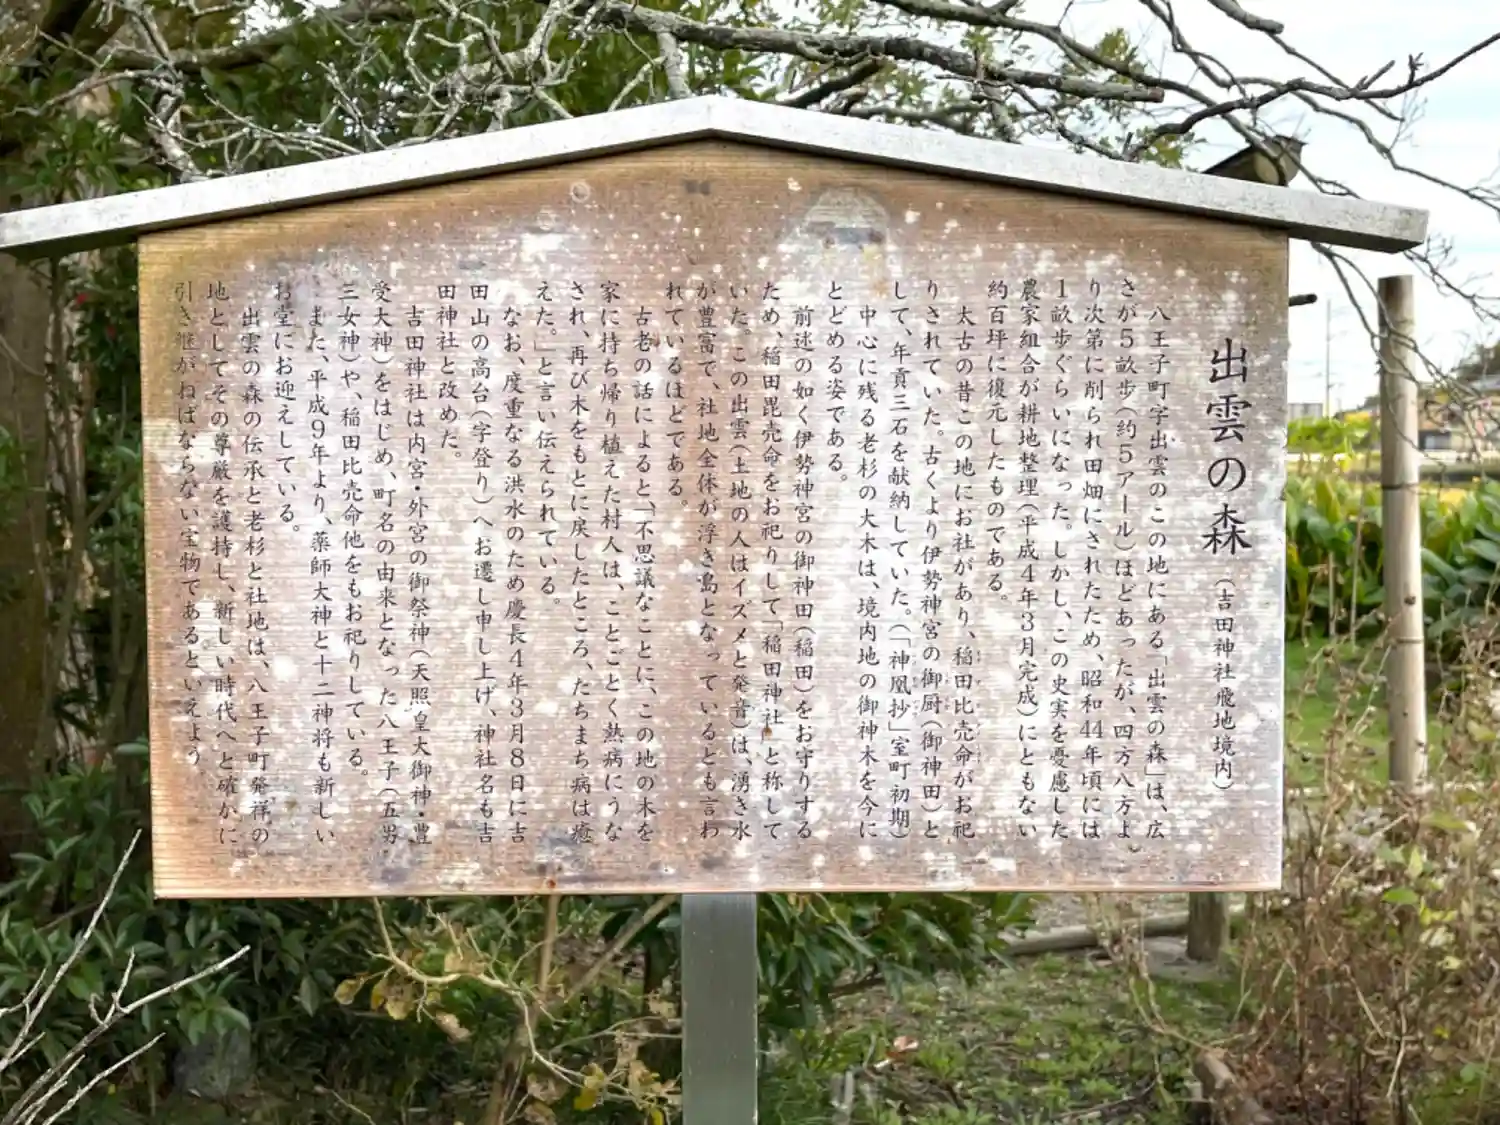 出雲の森（吉田神社飛地境内）
八王子町字出雲のこの地にある「出雲の森」は、広
さが５畝歩（約５アール）ほどあったが、四方八方よ
り次第に削られ田畑にされたため、昭和44年頃には
１畝歩ぐらいになった。しかし、この史実を憂慮した
農家組合が耕地整理（平成４年３月完成）にともない
約百坪に復元したものである。
太古の昔この地にお社があり、稲田比売命がお祀
りされていた。古くより伊勢神宮の御厨（御神田）と
して、年貢三石を献納していた。（「神凰抄」室町初期）
中心に残る老杉の大木は、境内地の御神木を今に
とどめる姿である。
前述の如く伊勢神宮の御神田（稲田）をお守りする
ため、稲田毘売命をお祀りして「稲田神社」と称して
いた。この出雲（土地の人はイズメと発音）は、湧き水
が豊富で、社地全体が浮き島となっているとも言わ
れているほどである。
古老の話によると、「不思議なことに、この地の木を
家に持ち帰り植えた村人は、ことごとく熱病にうな
され、再び木をもとに戻したところ、たちまち病は癒
えた。」と言い伝えられている。
なお、度重なる洪水のため慶長４年３月８日に吉
田山の高台（字登り）へお遷し申し上げ、神社名も吉
田神社と改めた。
吉田神社は内宮・外宮の御祭神（天照皇大御神・豊
受大神）をはじめ、町名の由来となった八王子（五男・
三女神）や、稲田比売命他をもお祀りしている。
また、平成９年より、薬師大神と十二神将も新しい
お堂にお迎えしている。
出雲の森の伝承と老杉と社地は、八王子町発祥の
地としてその尊厳を護持し、新しい時代へと確かに
引き継がねばならない宝物であるといえよう。